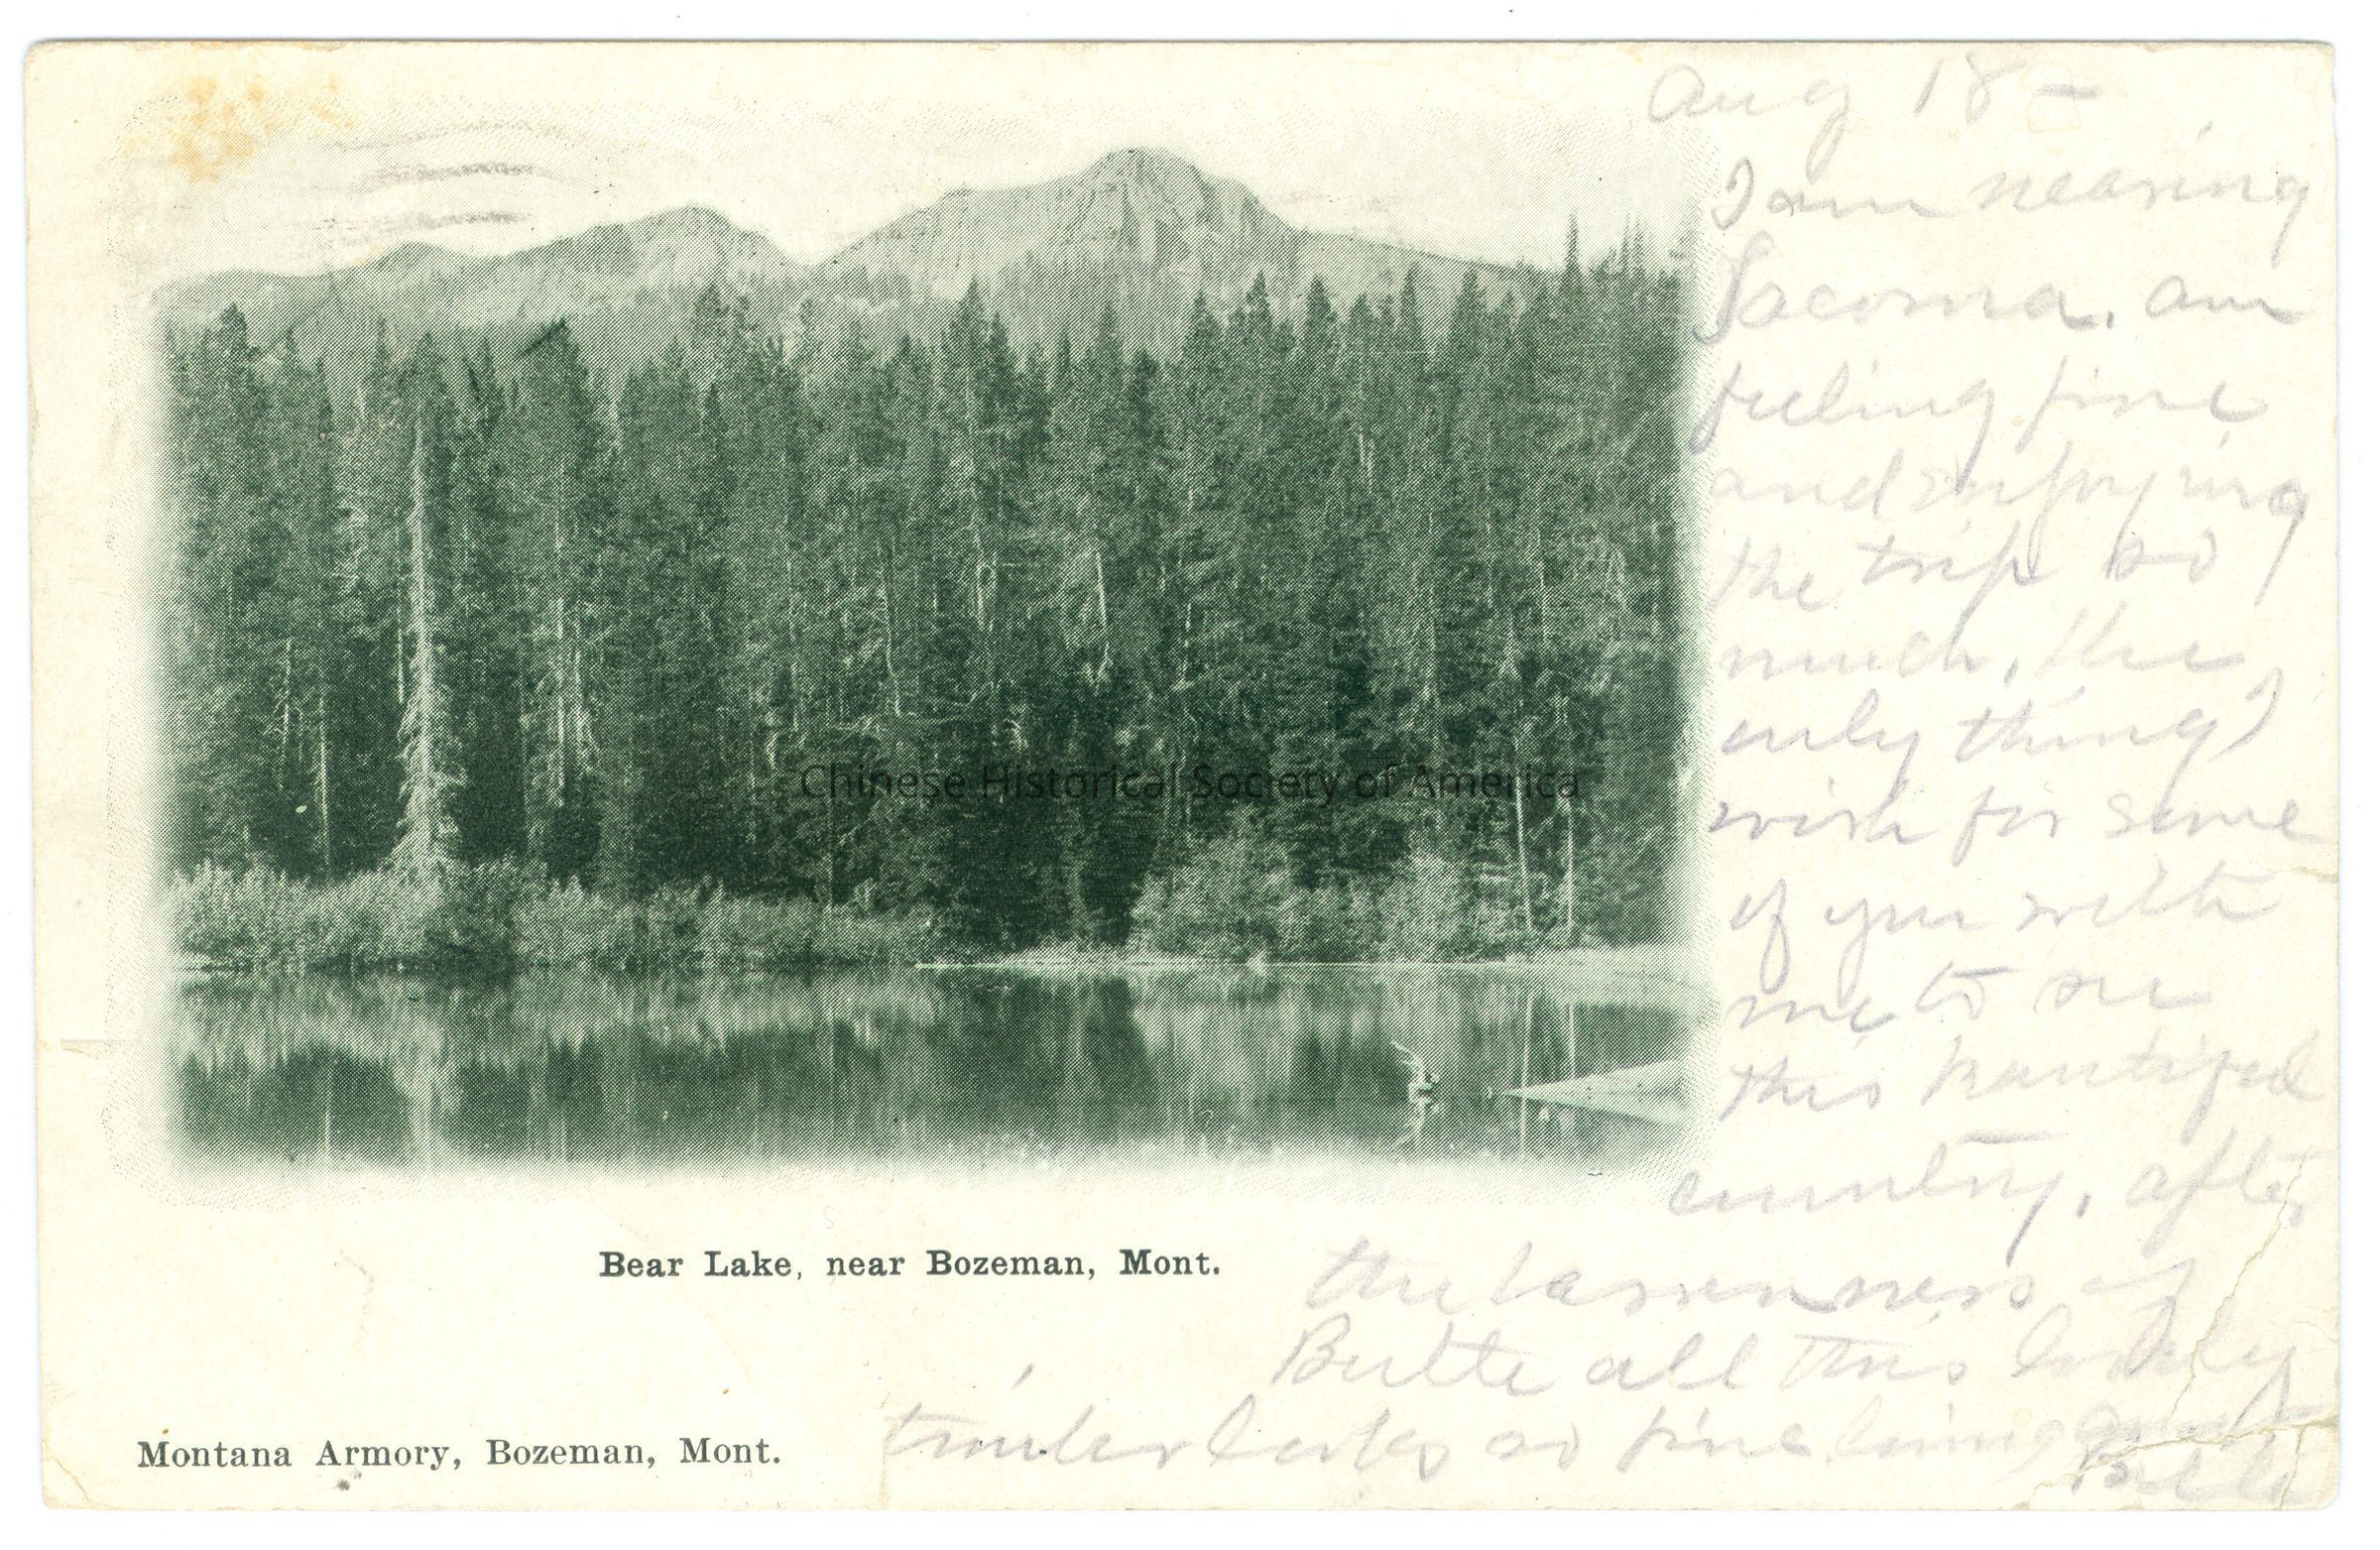 Aug 18 -
I am nearing
Tacoma. am
feeling fine
and enjoying
the trip so
much, the
only thing I
wish for some
of you with
me to see
this beautiful
country, after
the barrenness of
Butte all this lovely
timber looks so fine.
Chinese Historical Society of America
Bear Lake, near Bozeman, Mont.
Montana Armory, Bozeman, Mont.